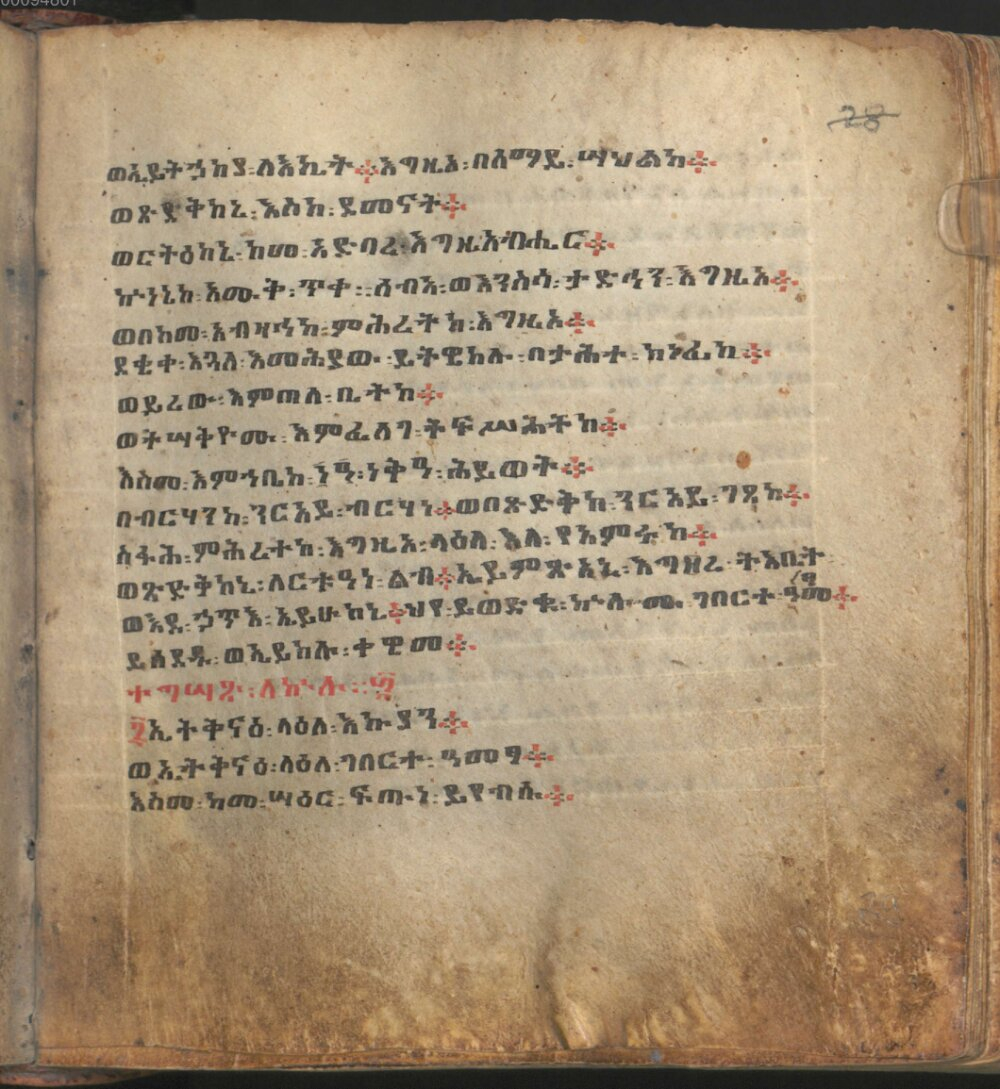 00094801
28
ወኢይትኃከያ፡ለእኪት፨እግዚኦ፡በሰማይ፡ሣህልከ፨
ወጽድቅከኒ፡እስከ፡ደመናት፨
ወርትዕከኒ፡ከመ፡አድባረ፡እግዚአብሔር፨
ኵነኔከ፡እሙቅ፡ጥቀ፡፡ሰብአ፡ወእንስሳ፡ታድኅን፡እግዚኦ፨
ወበከመ፡አብዛኅከ፡ምሕረትከ፡እግዚኦ፨
ደቂቀ፡እጓለ፡እመሕያው፡ይትዌከሉ፡በታሕተ፡ክነፊከ፨
ወይረውዩ፡እምጠለ፡ቤትከ፨
ወትሣቅዮሙ፡እምፈለገ፡ትፍሥሕትከ፨
እስመ፡እምኀቤከ፡ነዓ፡ነቅዓ፡ሕይወት፨
በብርሃንከ፡ንርአይ፡ብርሃነ፨ወበጽድቅከ፡ንርአይ፡ገጸከ፨
ስፋሕ፡ምሕረተከ፡እግዚኦ፡ላዕለ፡እለ፡የአምሩከ፨
ወጽድቅከኒ፡ለርቱዓነ፡ልብ፨ኢይምጽአኒ፡እግዘረ፡ትእቢት
ወእደ፡ኃጥእ፡ኢይሁከኒ፨ህየ፡ይወድቁ፡ኵሎሙ፡ገበርተ፡ዓመፃ፨
ይሰደዱ፡ወኢይክሉ፡ቀዊመ፨
ተግሣጽ፡ለኵሉ፡፡፴፮
፩ኢትቅናዕ፡ላዕለ፡እኩያን፨
ወኢትቅናዕ፡ላዕለ፡ገበርተ፡ዓመፃ፨
እስመ፡ከመ፡ሣዕር፡ፍጡነ፡ይየብሱ፨